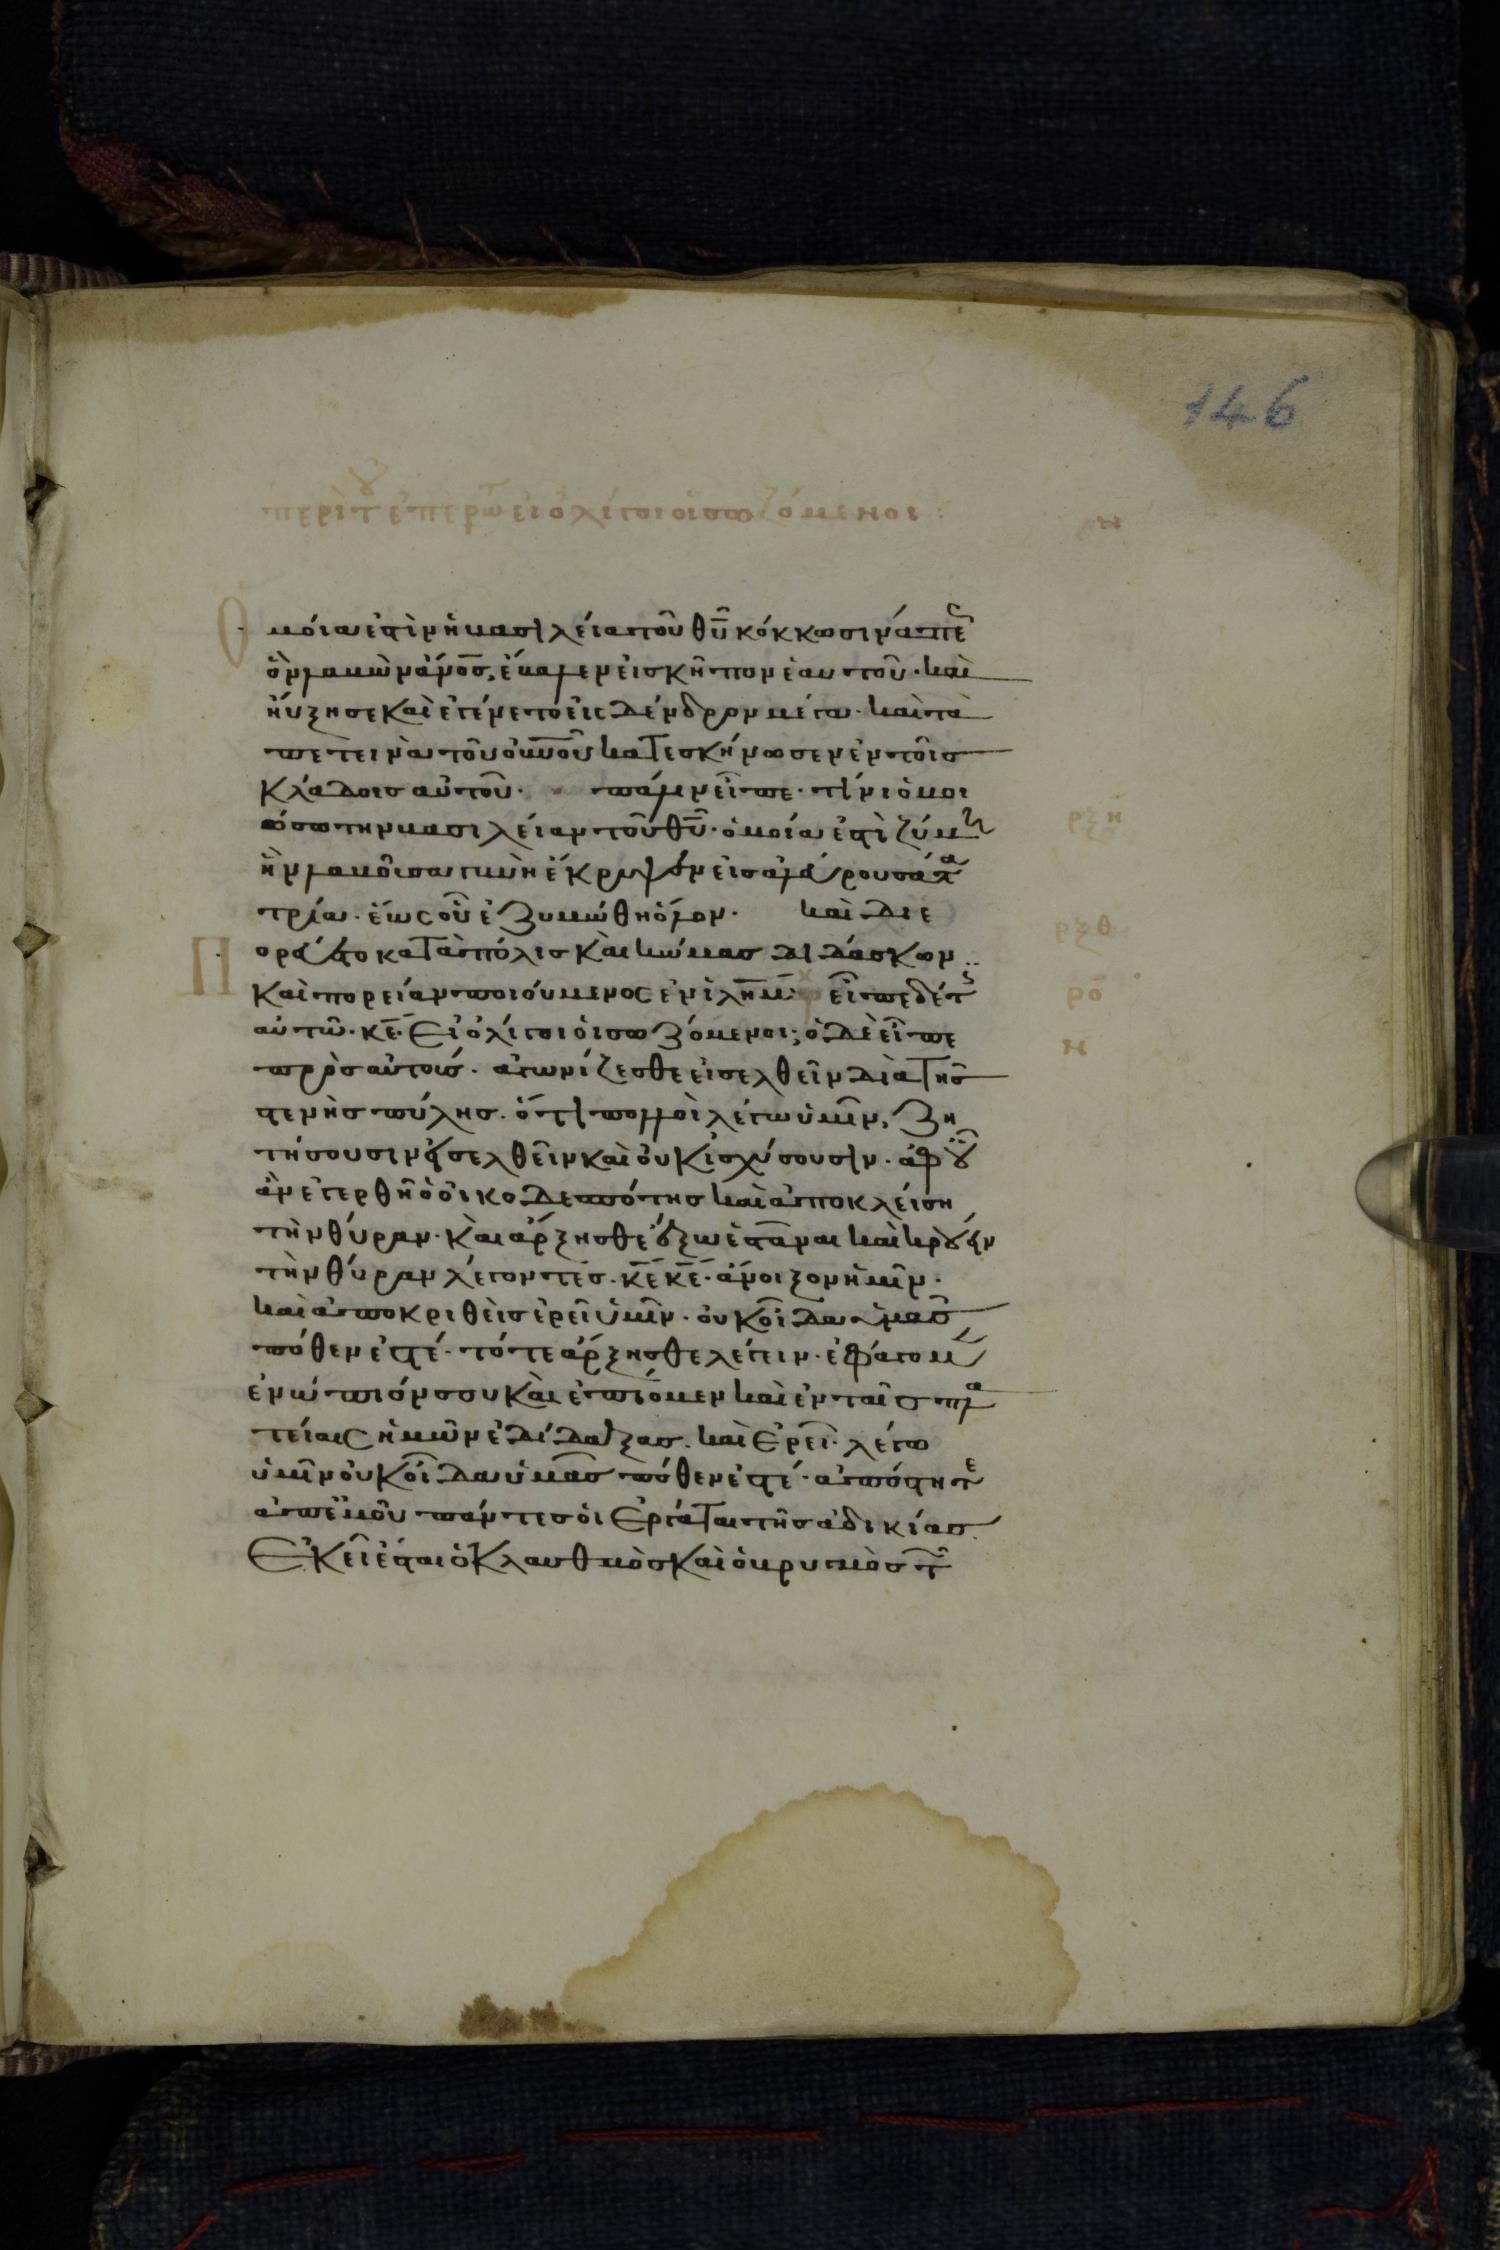 146
περὶ τοῦ ἐπερωτ εἰ ὀλίγοι οἱ σωζόμενοι :
Ὁμοία ἐστὶν ἡ βασιλεία τοῦ θυ κόκκω σινάπεως
ὃν λαβὼν ἄνος, ἔβαλεν εἰς κῆπον ἑαυτοῦ· καὶ
ηὔξησε καὶ ἐγένετο εἰς δένδρον μέγα· καὶ τὰ
πετεινὰ τοῦ οὐνοῦ κατεσκήνωσεν ἐν τοῖς
κλάδοις αὐτοῦ· πάλιν εἶπε· τίνι ὁμοι
ώσω την βασιλείαν τοῦ θυ· ὁμοία ἐστὶ ζύμη
ρξη
ἣν λαβοῦσα γυνὴ ἔκρυψεν εἰς ἀλεύρου σάτα
τρία· ἕως οὗ ἐζυμώθη ὅλον· καὶ διε
ρξθ
πορεύετο κατὰ πόλις καὶ κώμας διδάσκων
καὶ πορείαν ποιούμενος ἐν ιλημ· εἶπε δέ τις
ρο
αὐτῶ· κε· Εἰ ὀλίγοι οἱ σωζόμενοι; ὁ δὲ εἶπε
πρὸς αὐτούς· ἀγωνίζεσθε εἰσελθεῖν διὰ τῆς
στενῆς πύλης· ὅτι πολλοὶ λέγω ὑμῖν, ζη
τήσουσιν εἰσελθεῖν καὶ οὐκ ἰσχύσουσιν· ἀφ οὗ
ἂν ἐγερθῆ ὁ οἰκοδεσπότης καὶ ἀποκλείση
τὴν θύραν· καὶ ἄρξησθε ἔξω ἑστάναι καὶ κρούειν
τὴν θύραν λέγοντες· κε κε· ἄνοιξον ἡμῖν·
καὶ ἀποκριθεὶς ἐρεῖ ὑμῖν· οὐκ οἶδα ὑμᾶς
πόθεν ἐστέ· τότε ἄρξησθε λέγειν· ἐφάγομεν
ἐνώπιόν σου καὶ ἐπίομεν καὶ ἐν ταῖς πλα
τείαις ἡμῶν ἐδίδαξας· καὶ ἐρεῖ· λέγω
ὑμῖν οὐκ οἶδα ὑμᾶς πόθεν ἐστέ· ἀπόστητε
ἀπ ἐμοῦ πάντες οἱ ἐργάται τῆς ἀδικίας
Ἐκεῖ ἔσται ὁ κλαυθμὸς καὶ ὁ βρυγμὸς τῶν